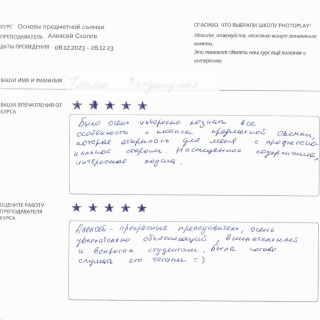 КУРС Основы предметной съемки
ПРЕПОДАВАТЕЛЬ Алексей Сколов
ДАТЫ ПРОВЕДЕНИЯ 08.12.2023 - 28.12.23
СПАСИБО, ЧТО ВЫБРАЛИ ШКОЛУ PHOTOPLAY!
Уделите, пожалуйста, несколько минут заполнению
анкеты.
Это поможет сделать наш курс ещё полезнее и
интереснее.
ВАШИ ИМЯ И ФАМИЛИЯ
ВАШИ ВПЕЧАТЛЕНИЯ ОТ
КУРСА
Было очень интересно познать все
особенности и нюансы предметной съемки,
которая открылась для меня с профессио-
нальной стороны. Насыщенное содержание,
интересная подача.
ОЦЕНИТЕ РАБОТУ
ПРЕПОДАВАТЕЛЯ
КУРСА
Алексей - прекрасный преподаватель, очень
увлекательно объясняющий, внимательный
к вопросам студентов. Была готова
слушать его часами :)